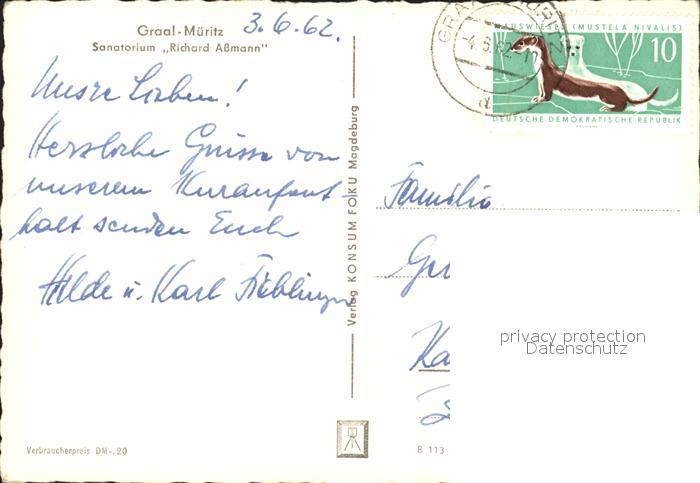 Graal-Müritz
3.6.62.
Sanatorium „Richard Aßmann"
Unsre Lieben!
Herzliche Grüsse von
unserem Kuraufent-
halt senden Euch
Hilde u. Karl
Verlag KONSUM FOKU Magdeburg
MAUSWIESEL (MUSTELA NIVALIS)
10
DEUTSCHE DEMOKRATISCHE REPUBLIK
-4.6.62
Familie
Ger
Ka
privacy protection
Datenschutz
Verbraucherpreis DM -,20
B 113